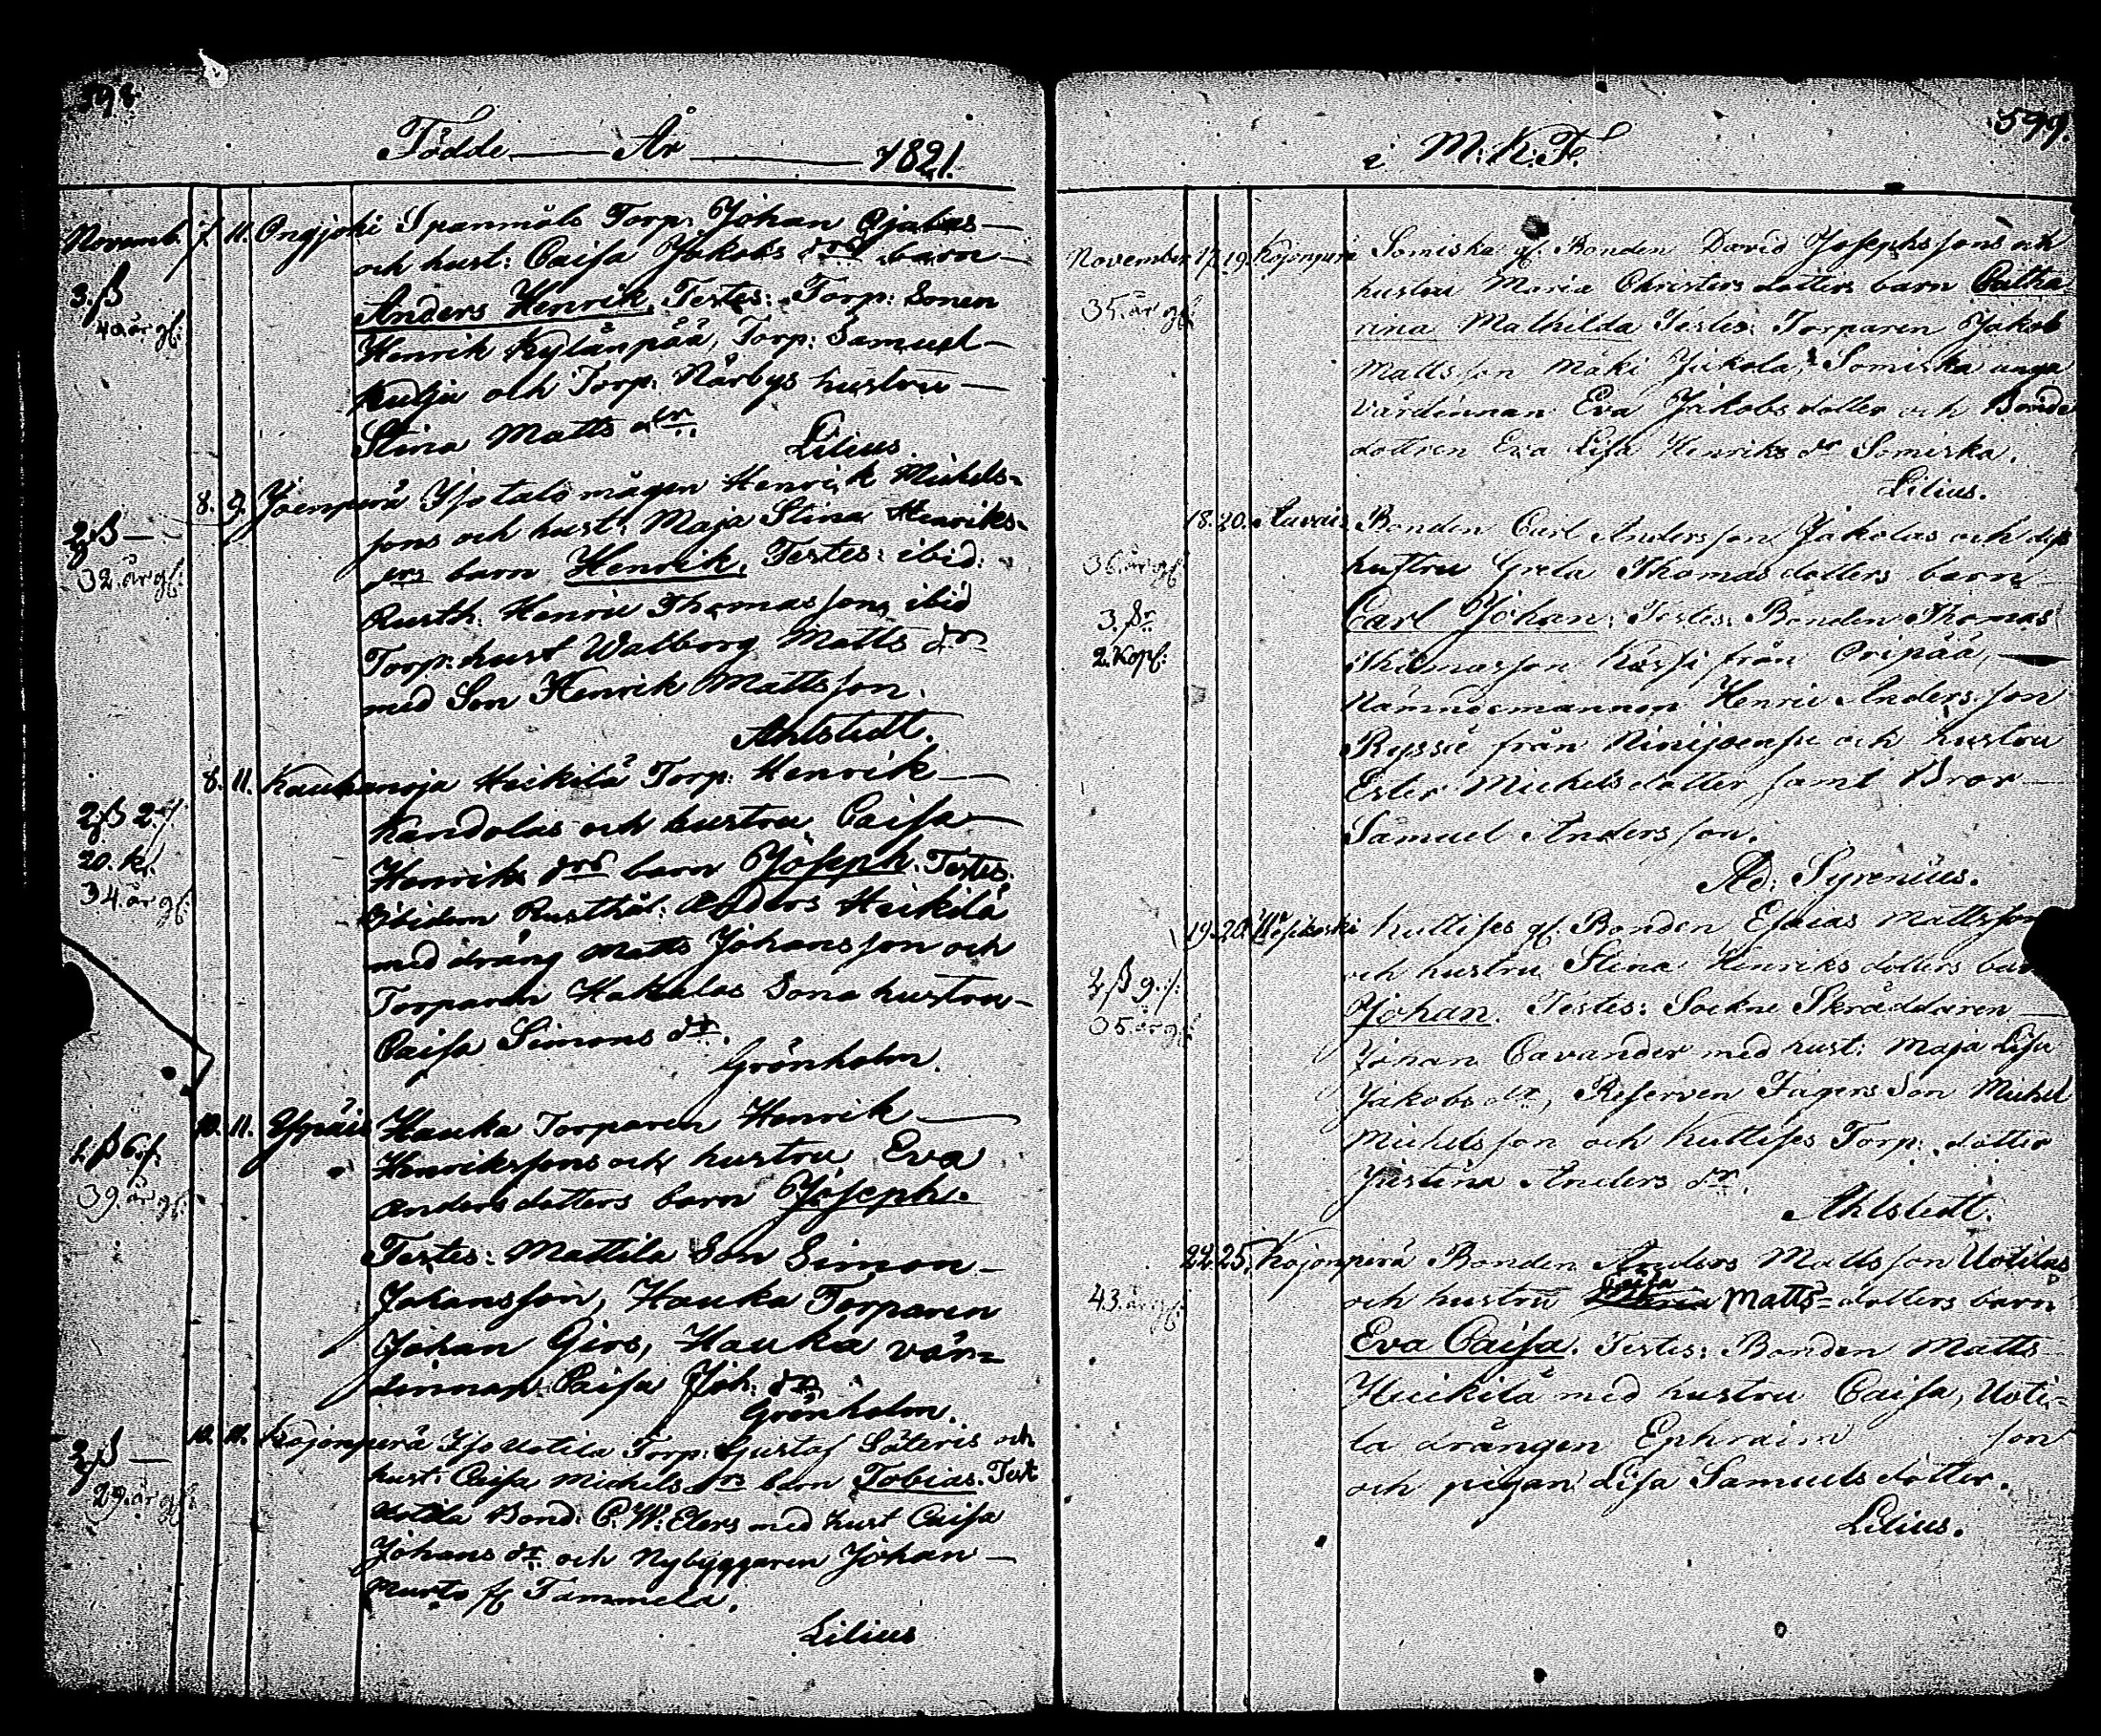 598.
Födde — År — 1821.
Novemb. 7. 11. Ongjoki Spanmåls Torp: Johan Ojalas —
och hust: Caisa Jakobs drs barn —
3. ß
40 år gl:
Anders Henrik. Testes: Torp: Sonen
Henrik Kylänpää, Torp: Samuel —
Kulju och Torp: Närbys hustru —
Stina Matts dr.
Lilius.
8. 9. Joenperä Isotalo mågen Henrik Michels-
sons och hust: Maja Stina Henriks-
2 ß —
32. år gl:
drs barn Henrik. Testes: ibid:
Rusth: Henric Thomasson, ibid
Torp: hust Walborg Matts dr
med Son Henrik Mattsson.
Ahlstedt.
8. 11. Kauhanoja Heikilä Torp: Henrik —
2 ß 2 f.
20. k.
34. år gl:
Kandolas och hustru Caisa —
Henriks drs barn Joseph. Testes:
Ibidem Rusthål: Anders Heikilä
med dräng Matts Johansson och
Torparen Hakulas Sons hustru —
Caisa Simons dr.
Grönholm.
10. 11. Ypäis Hauka Torparen Henrik —
1. ß 6. f.
39. år gl:
Henrikssons och hustru Eva
Anders dotters barn Joseph.
Testes: Mattila Son Simon —
Johansson, Hauka Torparen
Johan Girs, Hauka vär-
dinnan Caisa Joh. dr
Grönholm.
10. 11. Kojonperä Iso Uotila Torp: Gustaf Säteris och
2 ß —
29. år gl:
hust: Caisa Michels drs barn Tobias. Test
Uotila Bond: C. W. Elers med hust Caisa
Johans dr och Nybyggaren Johan —
Murto fr Tammela.
Lilius
599.
i M. K. F.
November 17. 19. Kojonperä Somiska gl. Bonden David Josephssons och
35. år gl:
hustru Maria Christers dotters barn Catha
rina Mathilda Testes: Torparen Jakob
Mattsson Mäki Jukola, Somiska unga
värdinnan Eva Jakobs dotter och Bonde
dottren Eva Lisa Henriks dr Somiska.
Lilius.
18. 20. Bonden Carl Andersson Jakolas och dess
36. år gl:
3. ßr
2. Kopf:
hustru Greta Thomas dotters barn
Carl Johan: Testes: Bonden Thomas
Thomasson Kässi från Oripää, —
Nämndemannen Henric Andersson
Ryssä från Ninijoensu och hustru
Ester Michels dotter samt Bror —
Samuel Andersson.
Ad: Syrenius.
19. 20. Kullises gl. Bonden Esaias Mattsson
2 ß 9. f.
35. år gl:
och hustru Stina Henriks dotters bar
Johan. Testes: Sockne Skräddaren —
Johan Cavander med hust: Maja Lisa
Jakobs dr, Reserven Fagers Son Michel
Michelsson och Kullises Torp: dotter
Justina Anders dr.
Ahlstedt.
22. 25. Kojonperä Bonden Anders Mattsson Uotilas
43. år gl:
och hustru Caisa Matts-dotters barn
Eva Caisa. Testes: Bonden Matts
Heikilä med hustru Caisa, Uoti-
la drängen Ephraim son
och pigan Lisa Samuels dotter.
Lilius.